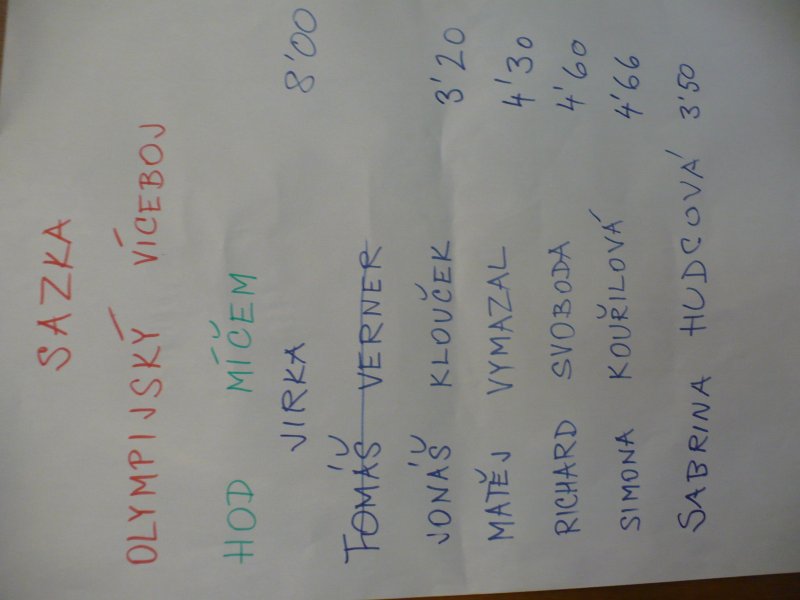 SAZKA
OLYMPIJSKÝ VÍCEBOJ
HOD MÍČEM
JIRKA 8'00
TOMÁŠ VERNER
JONÁŠ KLOUČEK 3'20
MATĚJ VYMAZAL 4'30
RICHARD SVOBODA 4'60
SIMONA KOUŘILOVÁ 4'66
SABRINA HUDCOVÁ 3'50